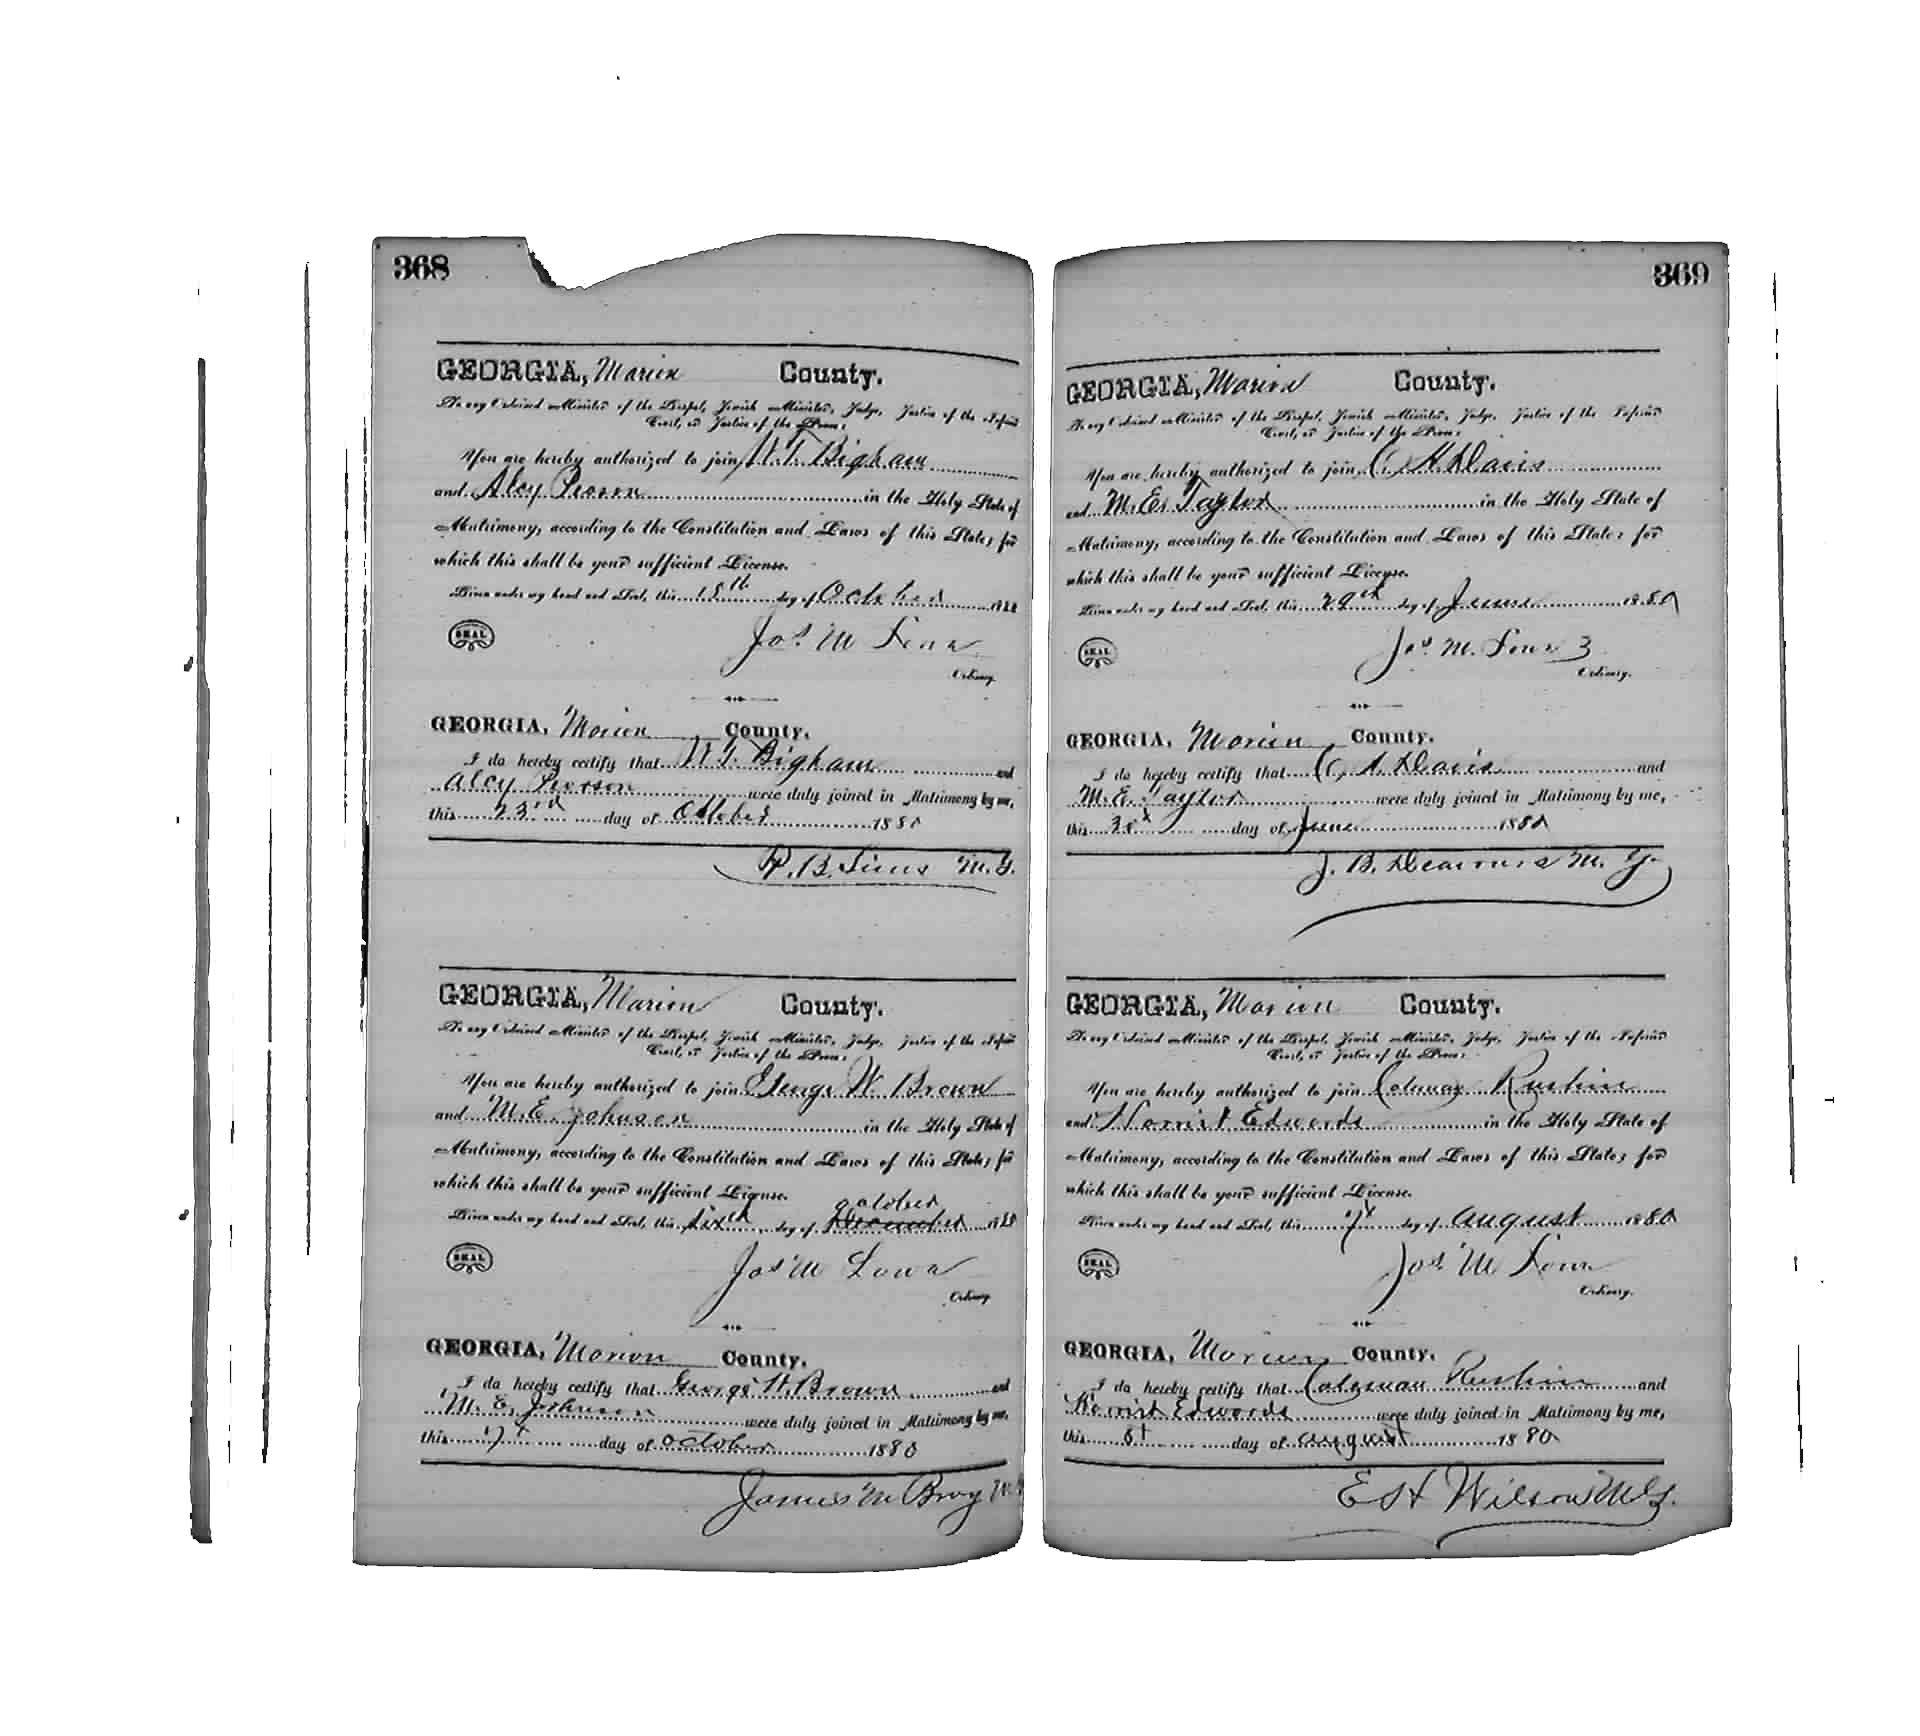 368
GEORGIA, Marion County.
To any Ordained Minister of the Gospel, Jewish Minister, Judge, Justice of the Inferior
Court, or Justice of the Peace:
You are hereby authorized to join W. T. Bigham
and Alcy in the Holy State of
Matrimony, according to the Constitution and Laws of this State; for
which this shall be your sufficient License.
Given under my hand and Seal, this 18th day of October 1880
SEAL
Jos. M Lowe
Ordinary.
GEORGIA, Marion County.
I do hereby certify that W. T. Bigham and
Alcy Pierson were duly joined in Matrimony by me,
this 23rd day of October 1880
B. Sims M.G.
GEORGIA, Marion County.
To any Ordained Minister of the Gospel, Jewish Minister, Judge, Justice of the Inferior
Court, or Justice of the Peace:
You are hereby authorized to join George W. Brown
and M. E. Johnson in the Holy State of
Matrimony, according to the Constitution and Laws of this State; for
which this shall be your sufficient License.
october
Given under my hand and Seal, this sixth day of December 1880
SEAL
Jos M Lowe
Ordinary.
GEORGIA, Marion County.
I do hereby certify that George W. Brown and
M. E. Johnson were duly joined in Matrimony by me,
this 7th day of october 1880
James M Bray
369
GEORGIA, Marion County.
To any Ordained Minister of the Gospel, Jewish Minister, Judge, Justice of the Inferior
Court, or Justice of the Peace:
You are hereby authorized to join C. H. Davis
and M. E. Taylor in the Holy State of
Matrimony, according to the Constitution and Laws of this State; for
which this shall be your sufficient License.
Given under my hand and Seal, this 29th day of June 1880
SEAL
Jos. M. Lowe
Ordinary.
GEORGIA, Marion County.
I do hereby certify that C. H. Davis and
M. E. Taylor were duly joined in Matrimony by me,
this 30th day of June 1880
J. B. M. G.
GEORGIA, Marion County.
To any Ordained Minister of the Gospel, Jewish Minister, Judge, Justice of the Inferior
Court, or Justice of the Peace:
You are hereby authorized to join Coleman Rushin
and Edwards in the Holy State of
Matrimony, according to the Constitution and Laws of this State; for
which this shall be your sufficient License.
Given under my hand and Seal, this 7th day of August 1880
SEAL
Jos. M Lowe
Ordinary.
GEORGIA, Marion County.
I do hereby certify that Coleman Rushin and
Edwards were duly joined in Matrimony by me,
this 8th day of august 1880
E H Wilson M G.